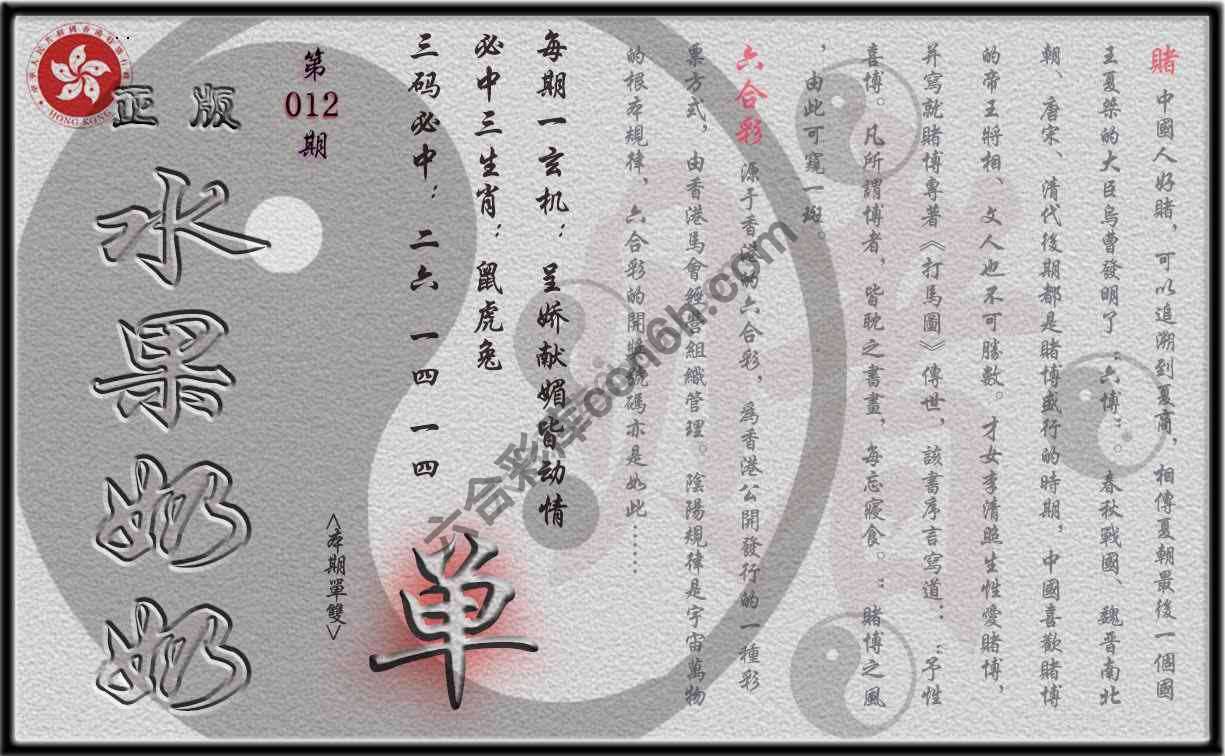 賭 中國人好賭，可以追溯到夏商，相傳夏朝最後一個國
王夏桀的大臣烏曹發明了：六博：。春秋戰國、魏晋南北
朝、唐宋、清代後期都是賭博盛行的時期，中國喜歡賭博
的帝王將相、文人也不可勝數。才女李清照生性愛賭博，
并寫就賭博專著《打馬圖》傳世，該書序言寫道：：予性
喜博。凡所謂博者，皆耽之晝晝，每忘寢食。：賭博之風
，由此可窺一斑。
六合彩 源于香港的六合彩，爲香港公開發行的一種彩
票方式，由香港馬會經營組織管理。陰陽規律是宇宙萬物
的根本規律、六合彩的開獎號碼亦是如此……
每期一玄机：呈娇献媚皆动情
必中三生肖：鼠虎兔
三码必中：二六 一四 一四
第
012
期
<本期單雙>
单
正版
水果奶奶
HONG KONG
六合彩库com6h.com